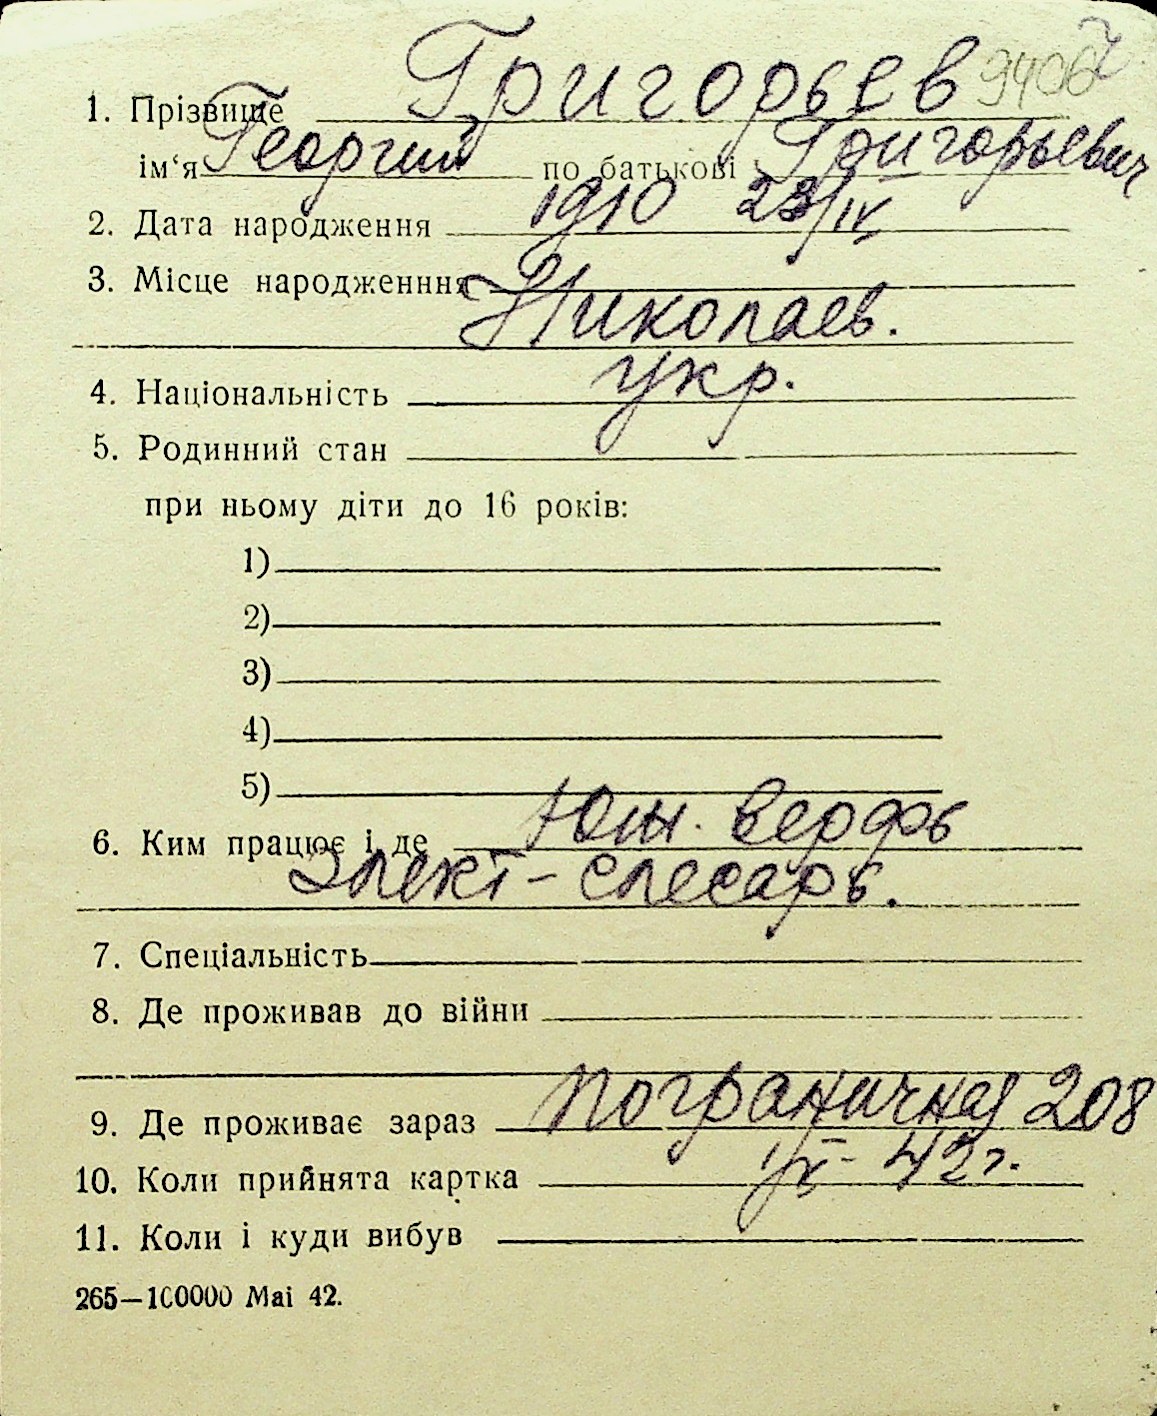 9406
1. Прізвище Григорьев
ім‘я Георгий по батькові Григорьевич
2. Дата народження 1910 23/IV
3. Місце народженння
Николаев.
4. Національність укр.
5. Родинний стан
при ньому діти до 16 років:
1)
2)
3)
4)
5)
6. Ким працює і де Юж. верфь
Элект- слесарь.
7. Спеціальність
8. Де проживав до війни
9. Де проживає зараз Пограничная 208
10. Коли прийнята картка 42 г.
11. Коли і куди вибув
265—100000 Mai 42.